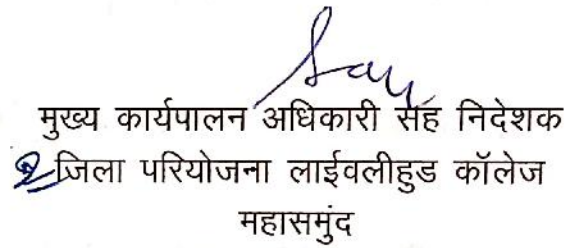 मुख्य कार्यपालन अधिकारी सह निदेशक
जिला परियोजना लाईवलीहुड कॉलेज
महासमुंद